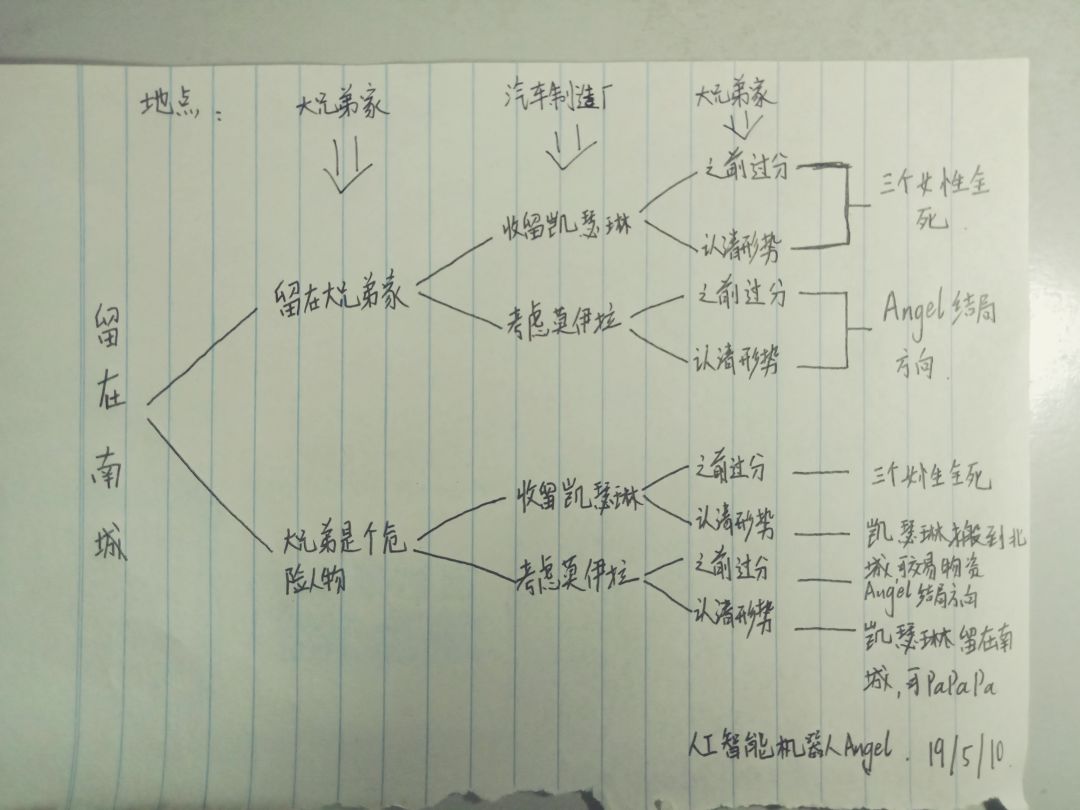 地点： 大兄弟家 汽车制造厂 大兄弟家
留在南城
留在大兄弟家
收留凯瑟琳
之前过分
认清形势
三个女性全
死
考虑莫伊拉
之前过分
认清形势
Angel结局
方向
大兄弟是个危
险人物
收留凯瑟琳
之前过分
三个女性全死
认清形势
凯瑟琳搬到北
城,可交易物资
考虑莫伊拉
之前过分
Angel结局方向
认清形势
凯瑟琳留在南
城,可PaPaPa
人工智能机器人Angel. 19/5/10.